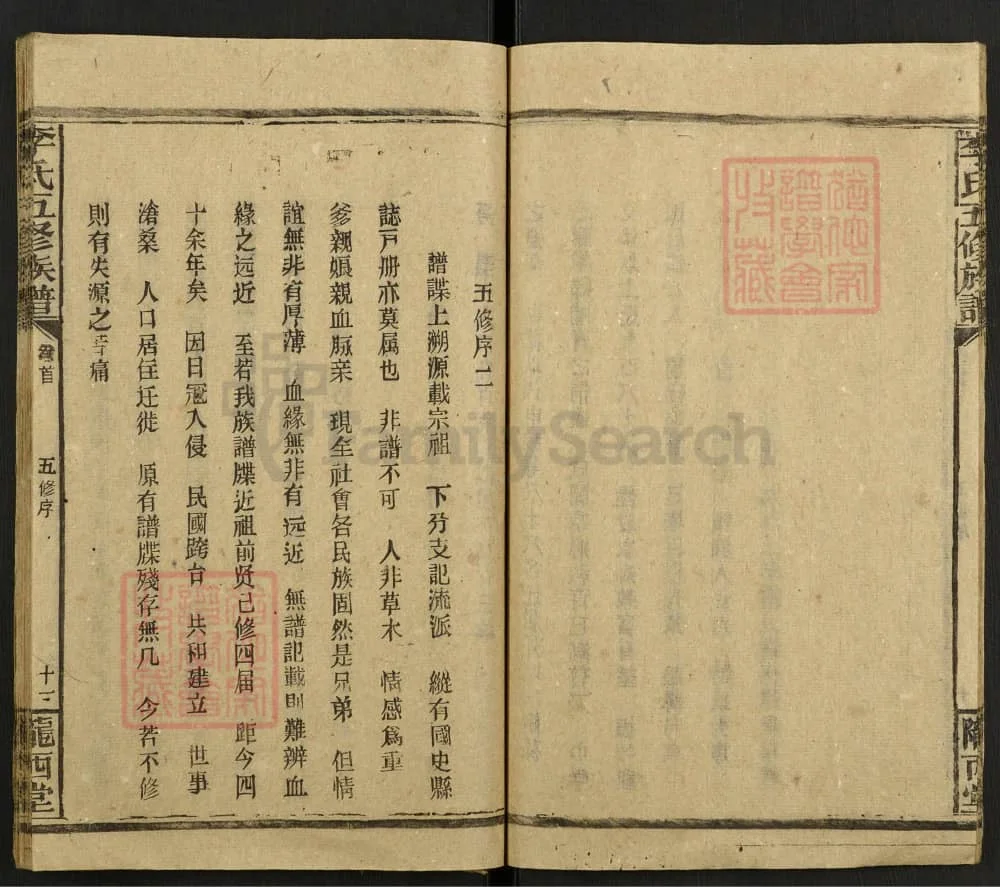 李氏五修族譜
隴西堂
五修序二
譜諜上溯源載宗祖 下分支記流派 縱有國史縣
誌戸册亦莫属也 非譜不可 人非草木 情感爲重
爹親娘親血脉亲 現在社會各民族固然是兄弟 但情
誼無非有厚薄 血緣無非有远近 無譜記載則難辨血
緣之远近 至若我族譜牒近祖前贤已修四届 距今四
十余年矣 因日冠入侵 民國跨台 共和建立 世事
滄桑 人口居住迁徙 原有譜牒殘存無几 今若不修
則有失源之痛
李氏五修族譜
卷首
五修序
十三
隴西堂
FamilySearch